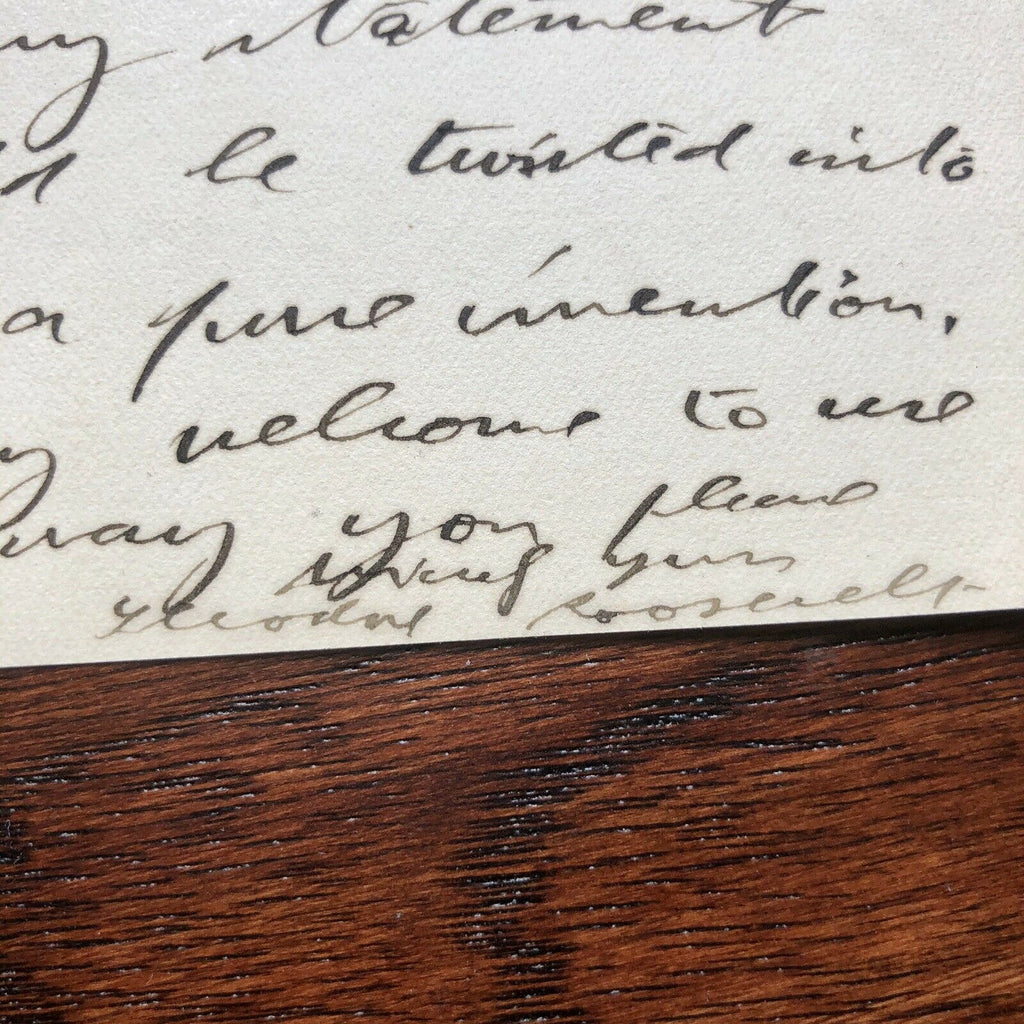 ny statement
d be twisted into
a pure invention,
y welcome to use
way you please
yours
Theodore Roosevelt